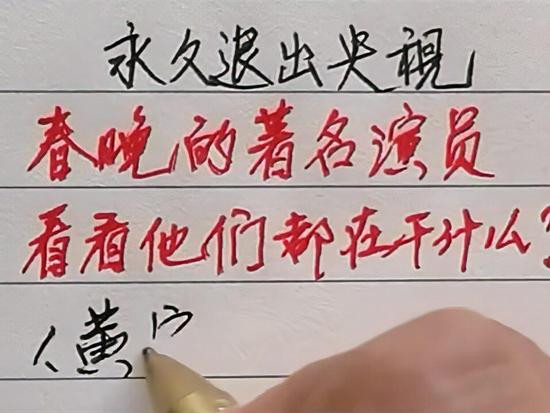 永久退出央视
春晚的著名演员
看看他们都在干什么?
、黄